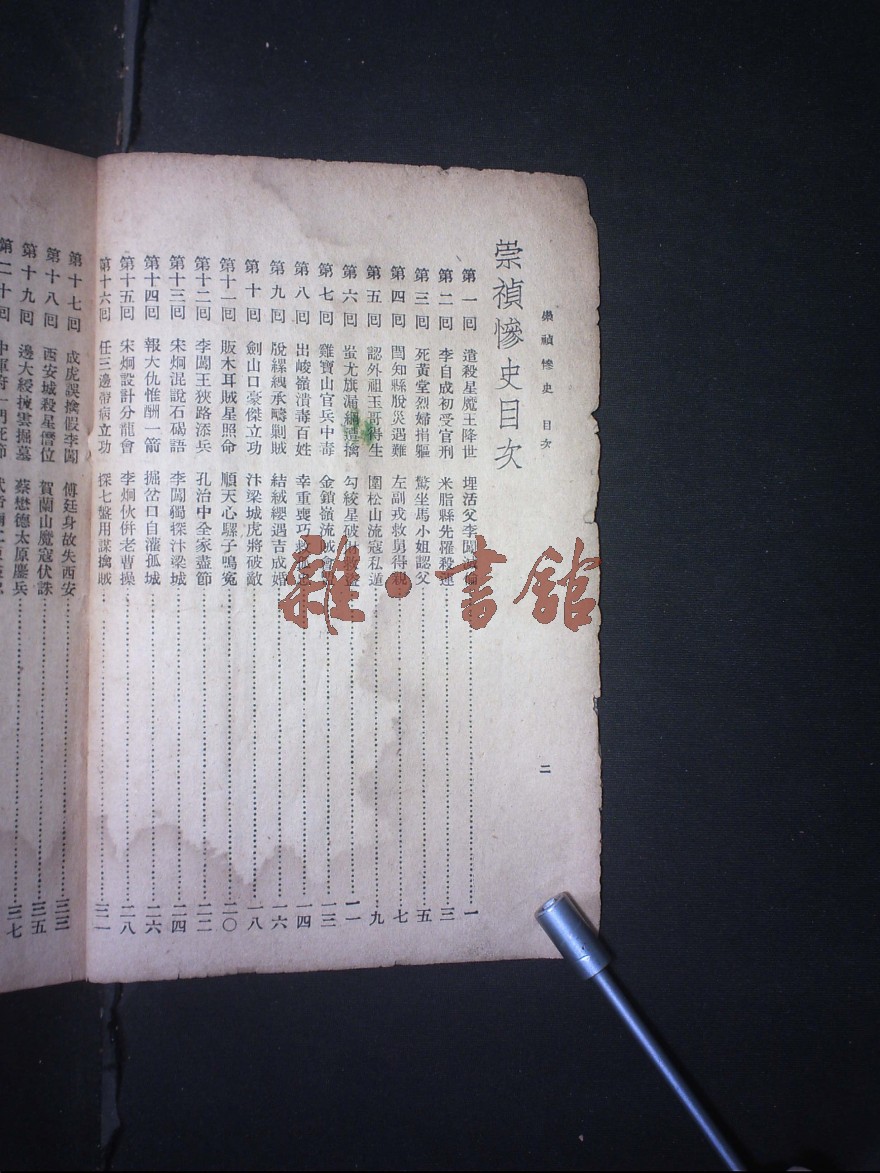 崇禎慘史 目次
二
崇禎慘史目次
第一回 遣殺星魔王降世 埋活父李闖滅倫 一
第二回 李自成初受官刑 米脂縣先罹殺運 三
第三回 死黃堂烈婦捐軀 驚坐馬小姐認父 五
第四回 閭知縣脫災遇難 左副戎救男得親 七
第五回 認外祖玉哥得生 圍松山流寇私遁 九
第六回 蚩尤旗漏網遭擒 勾絞星破 一一
第七回 雞寶山官兵中毒 金鎖嶺流賊會 一三
第八回 出峻嶺潰毒百姓 幸重喪巧救孤 一四
第九回 脫縲絏承疇剿賊 結絨纓遇吉成婚 一六
第十回 劍山口豪傑立功 汴梁城虎將破敵 一八
第十一回 販木耳賊星照命 順天心騾子鳴冤 二〇
第十二回 李闖王狹路添兵 孔治中全家盡節 二二
第十三回 宋炯混說石碣語 李闖獨探汴梁城 二四
第十四回 報大仇惟酬一箭 掘岔口自灌孤城 二六
第十五回 宋炯設計分龍會 李炯伙併老曹操 二八
第十六回 任三邊帶病立功 探七盤用謀擒賊 三一
第十七回 成虎誤擒假李闖 傅廷身故失西安 三三
第十八回 西安城殺星僭位 賀蘭山魔寇伏誅 三五
第十九回 邊大綬掘墓 蔡懋德太原鏖兵 三七
第二十回 中軍府一門死節
雜·書館